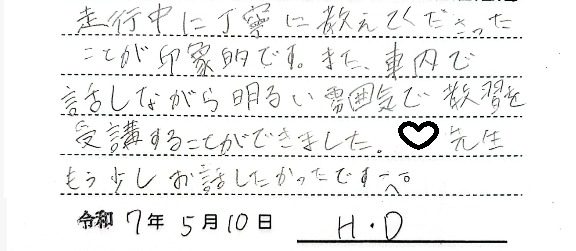 走行中に丁寧に教えてくださった
ことが印象的です。また、車内で
話しながら明るい雰囲気で教習を
受講することができました。♡先生
もう少しお話したかったです^^。
令和7年5月10日 H・D